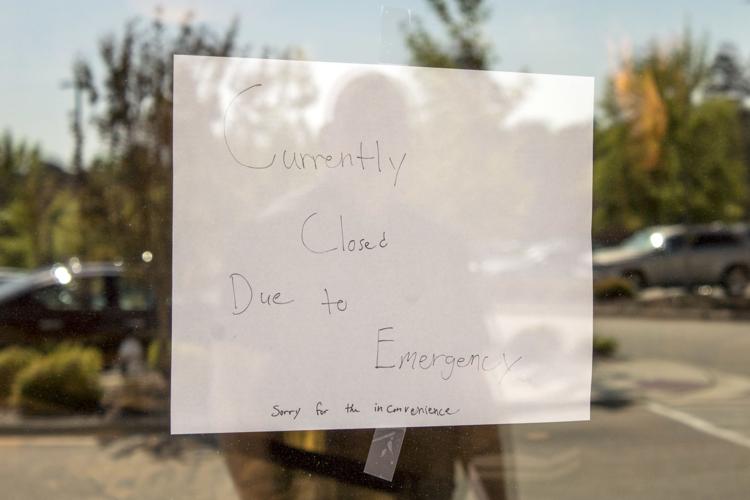 Currently
Closed
Due to
Emergency
Sorry for the inconvenience